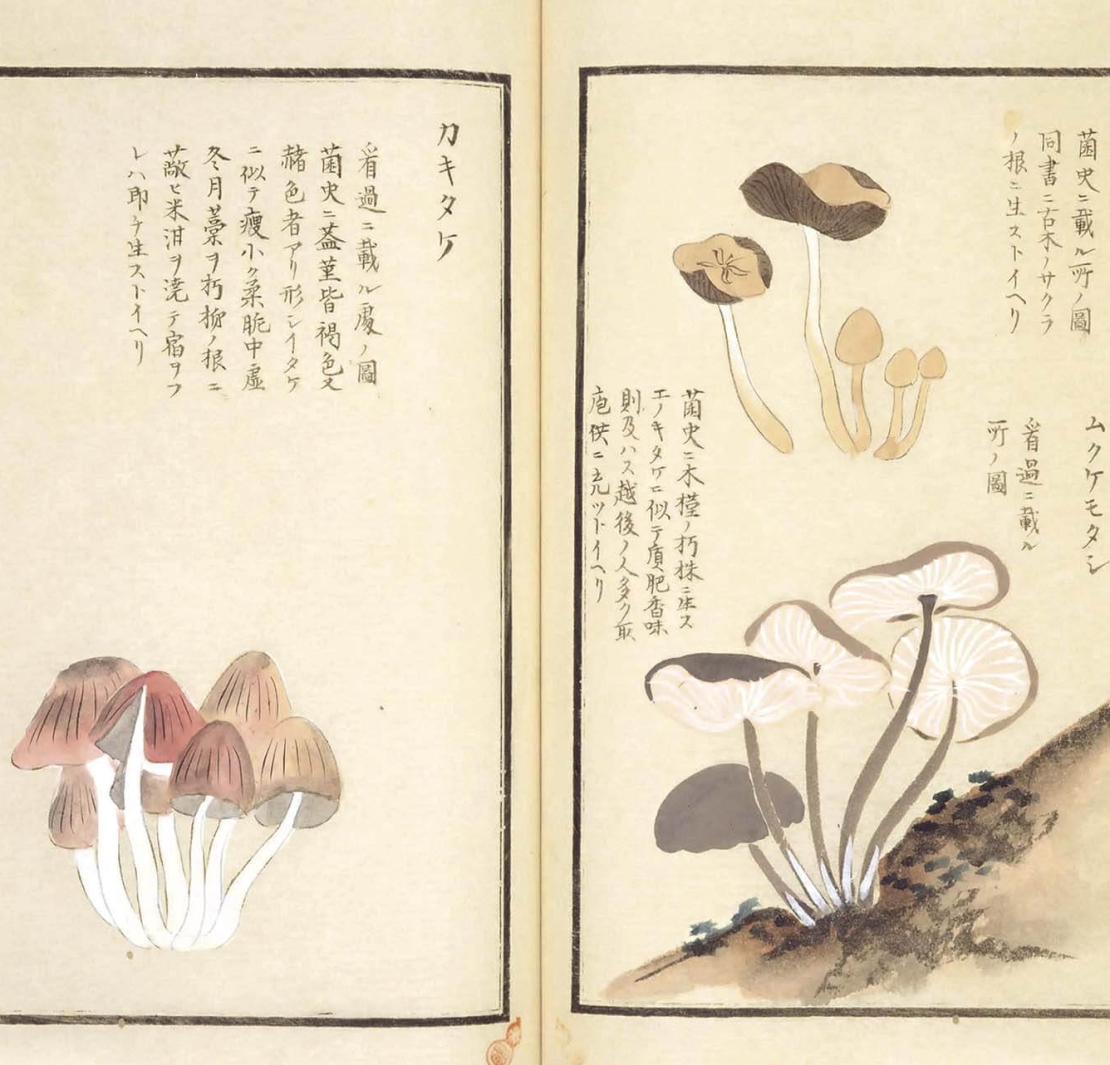 菌史ニ載ル所ノ圖
同書ニ古木ノサクラ
ノ根ニ生ストイヘリ
ムクケモタシ
看過ニ載ル
所ノ圖
菌史ニ木槿ノ朽株ニ生ス
エノキタケニ似テ質肥香味
則及ハス越後ノ人多ク取
庖供ニ充ツトイヘリ
カキタケ
看過ニ載ル處ノ圖
菌史ニ蓋莖皆褐色又
赭色者アリ形シイタケ
ニ似テ瘦小ク柔脆中虚
冬月藁ヲ朽柳ノ根ニ
蔽ヒ米泔ヲ澆テ宿ヲフ
レハ即チ生ストイヘリ